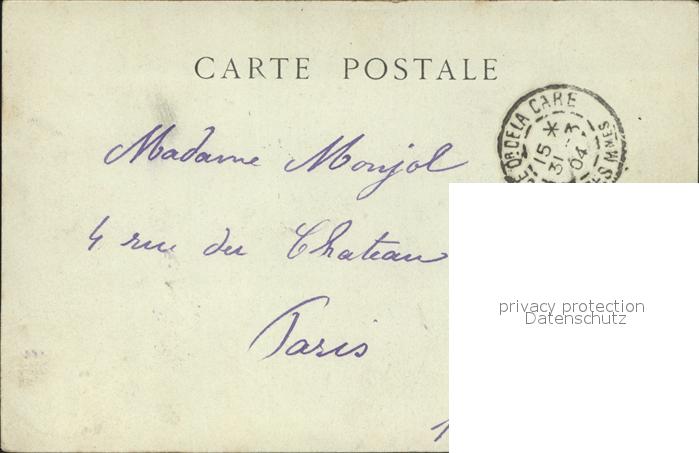 CARTE POSTALE
DE LA GARE
15
31 -3
04
Madame Monjol
4 rue du Chateau
Paris
privacy protection
Datenschutz